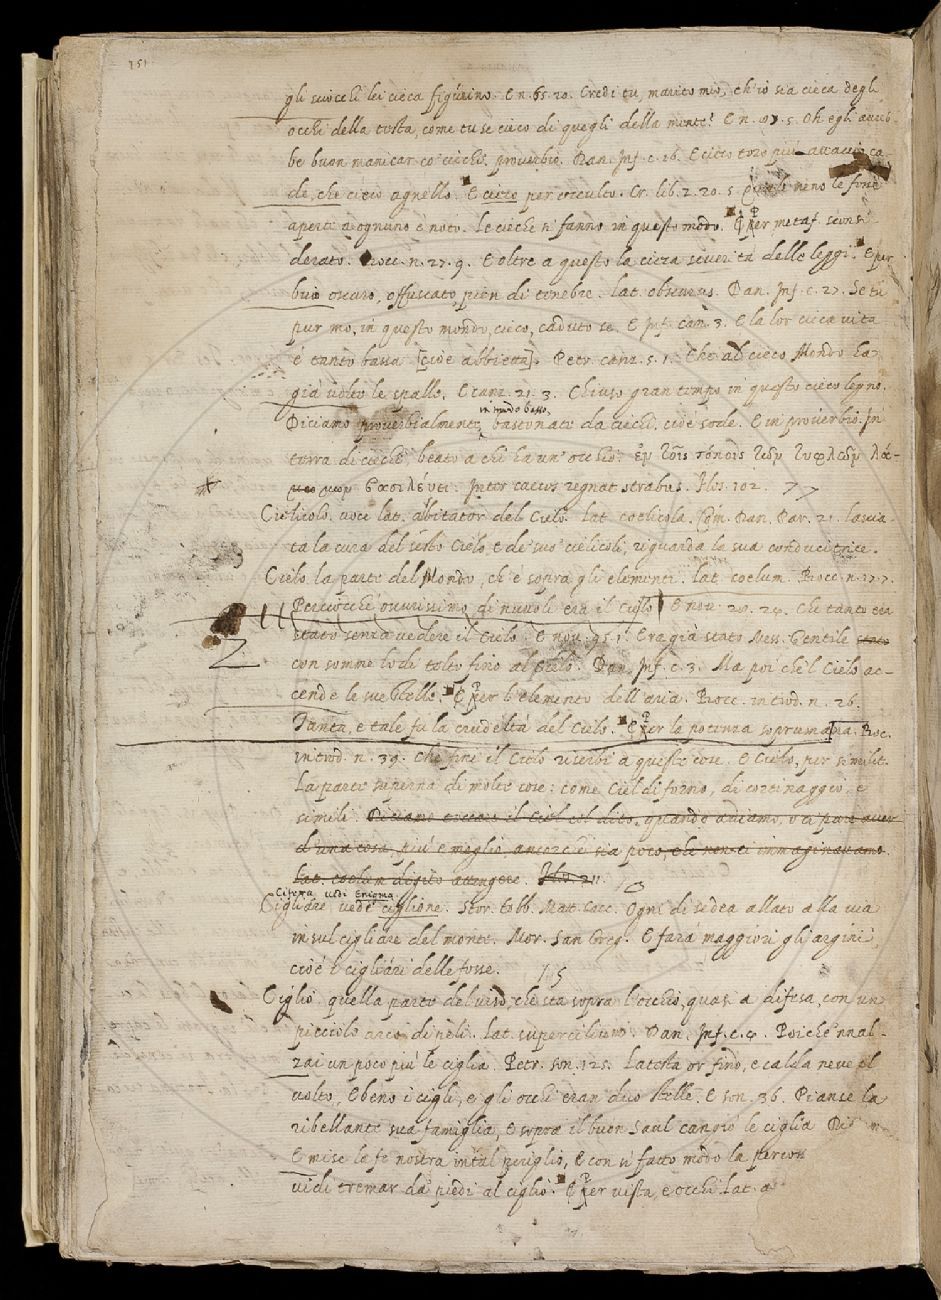 151
gli sciocchi lei cieca figurino. E n. 65. 20. Credi tu, marito mio, ch'io sia cieca degli
occhi della testa, come tu se cieco di quegli della mente? E n. 5. Oh egli avreb-
be buon manicar co' ciechi. proverbio. Dan. Inf. c. 16. E cieco toro più avaccio ca-
de, che cieco agnello. E cieco per occulto. Cr. lib. 2. 20. 5. Quali sieno le fosse
aperte a ognuno è noto. Le cieche si fanno in questo modo. E per metaf. sconsi-
derato. Bocc. n. 27. 9. E oltre a questo la cieca severità delle leggi. E per
buio oscuro, offuscato, pien di tenebre. Lat. obscurus. Dan. Inf. c. 27. Se tu
pur mo, in questo mondo, cieco, caduto se. E Inf. can. 3. E la lor cieca vita
è tanto bassa [cioè abbietta]. Petr. canz. 5. 1. Che al cieco Mondo ha
già volto le spalle. E canz. 21. 3. Chiuso gran tempo in questo cieco legno.
in modo basso,
Diciamo proverbialmente bastonate da ciechi, cioè sode. E in proverbio. In
terra di ciechi, beato a chi ha un' occhio. ἐν τοῖς τόποις τῶν τυφλῶν λά-
μων βασιλεύει. Inter caecos regnat strabus. Flos. 102. 77
Cielicolo. voce lat. abitator del Cielo. Lat. coelicola. Com. Dan. Par. 21. lascia-
ta la cura del serbo Cielo, e de' suo' cielicoli, riguarda la sua conducitrice.
Cielo. la parte del Mondo, ch'è sopra gli elementi. Lat. coelum. Bocc. n. 17. 7.
Perciocchè oscurissimo di nuvoli era il Cielo. E nov. 20. 24. Che tanto era
stato senza vedere il Cielo. E nov. 95. 1. Era già stato Mess. Gentile stato
con somme lodi tolto fino al Cielo. Dan. Inf. c. 3. Ma poi che'l Cielo ac-
cende le sue stelle. E per l'elemento dell'aria. Bocc. introd. n. 26.
Tanta, e tale fu la crudeltà del Cielo. E per la potenza soprumana. Boc.
introd. n. 39. Che fine il Cielo riserbi a queste cose. E Cielo, per similit.
La parte superna di molte cose: come Ciel di forno, di cortinaggio, e
simili. Diciamo toccare il Ciel col dito, quando abbiamo, o ci pare aver
d'una cosa più e meglio, ancorchè sia poco, che non ci immaginavamo.
Lat. coelum digito attingere. Flos. 211.
Cifera vedi Enigma
Cigliare vedi ciglione. Stor. Ebb. Matt. Sacc. Ogni dì sedea allato alla via
in sul cigliare del monte. Mor. San Greg. E farà maggiori gli argini,
cioè i cigliari delle fosse. 15
Ciglio. quella parte del viso, che sta sopra l'occhio, quasi a difesa, con un
piccolo arco di peli. Lat. supercilium. Dan. Inf. c. 4. Poichè 'nnal-
zai un poco più le ciglia. Petr. son. 125. La testa or fino, e calda neve il
volto, Ebeno i cigli, e gli occhi eran due stelle. E son. 36. Pianse la
ribellante sua famiglia, E sopra il buon Saul cangiò le ciglia
E mise la fe nostra in tal periglio, E con sì fatto modo la percosse
vidi tremar da' piedi al ciglio. E per vista, e occhi. Lat.